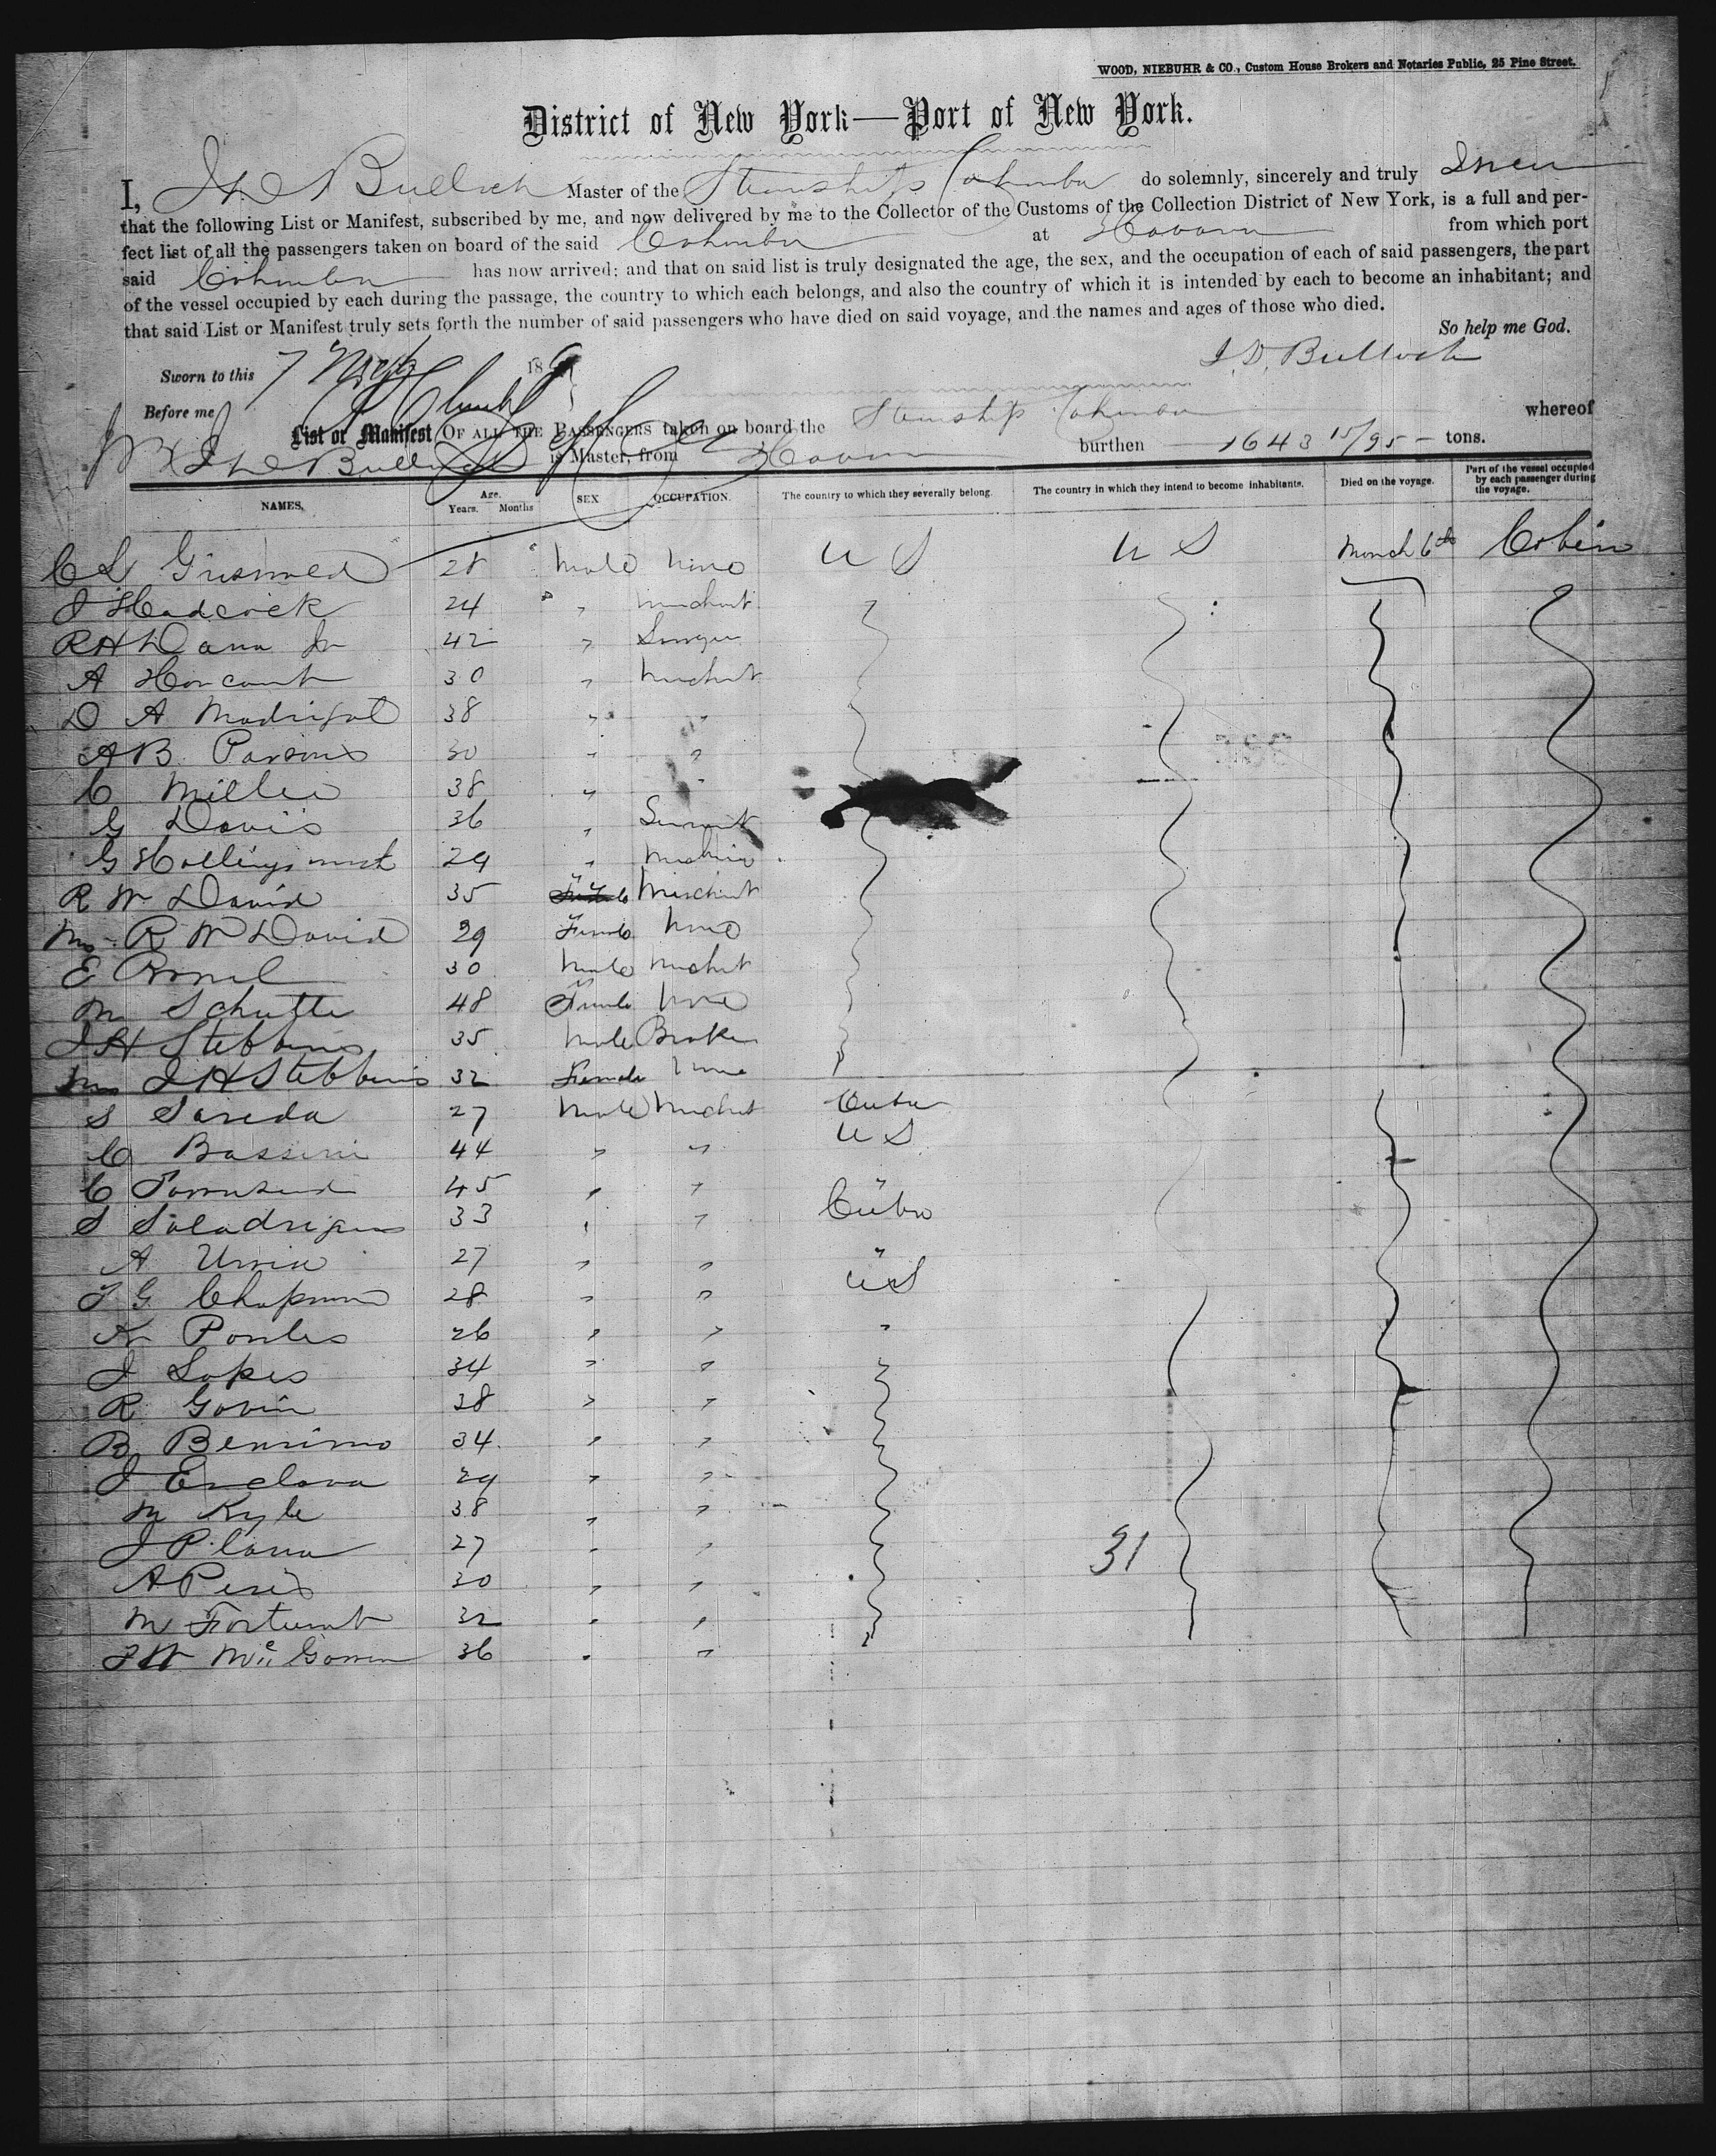 WOOD, NIEBUHR & CO., Custom House Brokers and Notaries Public, 25 Pine Street.
District of New York—Port of New York.
I, J D Bulloch Master of the Steamship Columbia do solemnly, sincerely and truly Swear
that the following List or Manifest, subscribed by me, and now delivered by me to the Collector of the Customs of the Collection District of New York, is a full and per-
fect list of all the passengers taken on board of the said Columbia at Havana from which port
said Columbia has now arrived; and that on said list is truly designated the age, the sex, and the occupation of each of said passengers, the part
of the vessel occupied by each during the passage, the country to which each belongs, and also the country of which it is intended by each to become an inhabitant; and
that said List or Manifest truly sets forth the number of said passengers who have died on said voyage, and the names and ages of those who died.
So help me God.
J. D. Bulloch
Sworn to this 7 18
Before me
List or Manifest OF ALL THE PASSENGERS taken on board the Steamship Columbia whereof
J D Bulloch is Master, from Havana burthen 1643 15/95 tons.
NAMES. Age. Years. Months SEX OCCUPATION. The country to which they severally belong. The country in which they intend to become inhabitants. Died on the voyage. Part of the vessel occupied by each passenger during the voyage.
C L Griswold 28 Male None U S U S March 6th Cabin
J Hadcock 24 " Merchant
R H Dana Jr 42 "
A Harcourt 30 " Merchant
D A Madrigal 38 " "
A B Parsons 30 " "
C Miller 38 " "
G Davis 36 " Servant
G Hollingsworth 29 "
R W David 35 Merchant
Mrs R W David 29 Female None
E 30 Male Merchant
M Schutte 48 Female None
J H Stebbins 35 Male Broker
Mrs J H Stebbins 32 Female None
S 27 Male Merchant Cuba
C Bassini 44 " " U S
C Townsend 45 " " "
S Saladrigas 33 " " Cuba
A 27 " " "
T G Chapman 28 " " U S
26 " " "
J Lopes 34 " "
R Govin 38 " "
B 34 " "
J 29 " "
M Kyle 38 " "
J Plana 27 " " 31
A Peris 30 " "
M 32 " "
J W McGowen 36 " "